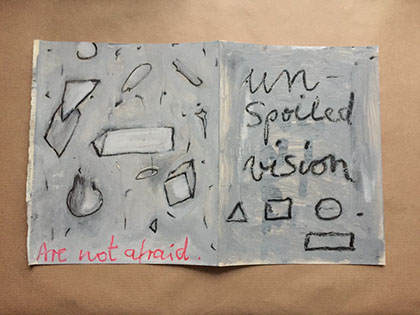 Are not afraid.
un-
Spoiled
vision